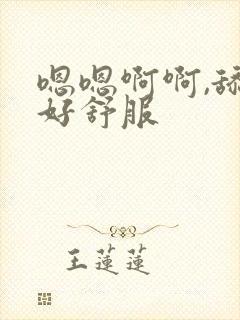 嗯嗯啊啊,舔
好舒服
王蓮蓮